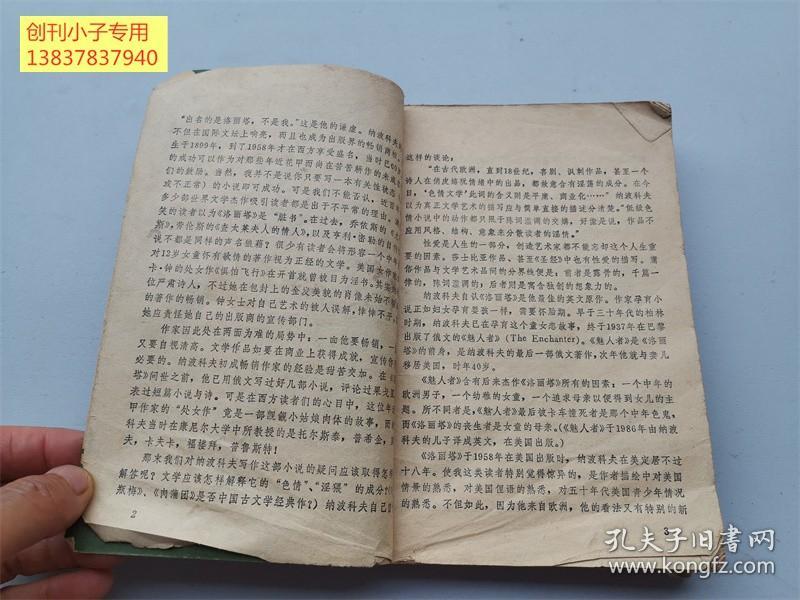 创刊小子专用
13837837940
“出名的是洛丽塔,不是我。”这是他的谦虚。纳波科夫
不但在国际文坛上响亮,而且也成为出版界的畅销商标。
生于1899年,到了1958年才在西方享受盛名,当时已60岁
的成功可以作为对那些年近花甲而尚在苦苦耕作的未成名
们的鼓励。当然,我并不是说你只要写一本有关性状态(
或不正常)的小说即可成功。可是我们不能否认,近百年
多少部世界文学杰作吸引读者都是出于不平常的理由。满
笑的读者以为《洛丽塔》是“脏书”。在过去,乔依斯的《
斯》,劳伦斯的《查太莱夫人的情人》,以及亨利·密勒的自传体
说不都是同样的声名狼藉?很少有读者会将形容一个中年
对12岁女童怀有欲情的著作视为正经的文学。美国女作家
卡·钟的处女作《惧怕飞行》在开首就曾被目为淫书。其实
位严肃诗人,不过她在也封上的全义美貌的肖像未始不帮
的著作的畅销。钟女士对自己艺术的被人误解,怏怏不乐,
她应责怪她自己的出版商的宣传部门。
作家因此处在两面为难的局势中,一面他要畅销,一
又要自视清高。文学作品如要在商业上获得成就,宣传
必要的。纳波科夫初成畅销作家的经验是甜苦交加。在《
塔》问世之前,他已用俄文写过好几部小说,评论过果戈里
表过短篇小说与诗。可是在西方读者们的心目中,这位年
甲作家的“处女作”竟是一部觊觎小姑娘肉体的故事,而
科夫当时在康尼尔大学中所教授的是托尔斯泰,普希金,
夫,卡夫卡,福楼拜,普鲁斯特!
那末我们对纳波科夫写作这部小说的疑问应该取得怎样
解答呢?文学应该怎样解释它的“色情”、“淫猥”的成分?
瓶梅》、《肉蒲团》是否中国古文学经典作?)纳波科夫自己
2
这样的谈论:
“在古代欧洲,直到18世纪,喜剧、讽刺作品,甚至一个
诗人在俏皮嬉忧情绪中的出品,都故意含有淫荡的成分。在今
日,‘色情文学’此词的含义只是平庸、商业化……”纳波科夫
以为真正文学艺术的描写应与简单直接的描述分清楚。“低级色
情小说中的动作都只限于陈词滥调的交媾,好像是说,作品不
应用风格、结构、意象来分散读者的淫情。”
性爱是人生的一部分,创造艺术家都不能忘却这个人生重
要的因素。莎士比亚作品、甚至《圣经》中也有性爱的描写。庸
俗作品与文学艺术品间的分界线便是:前者是露骨的,千篇一
律的,陈词滥调的;后者则是寓含独创的想象力的。
纳波科夫自认《洛丽塔》是他最佳的英文原作。作家孕育小
说正如妇女孕育婴孩一样,需要怀胎期。早于三十年代的柏林
时期,纳波科夫已在孕育这个童女恋故事,终于1937年在巴黎
出版了俄文的《魅人者》(The Enchanter)。《魅人者》是《洛丽
塔》的前身,是纳波科夫的最后一部俄文著作,次年他就与妻儿
移居美国,时年40岁。
《魅人者》含有后来杰作《洛丽塔》所有的因素:一个中年的
欧洲男子,一个幼稚的女童,一个追求母亲以便得到女儿的主
题。所不同者是,《魅人者》最后被卡车撞死者是那个中年色鬼,
而《洛丽塔》的丧生者是女童的母亲。(《魅人者》于1986年由纳
科夫的儿子译成英文,在美国出版。)
《洛丽塔》于1958年在美国出版时,纳波科夫在美定居不过
十八年。使我这类读者特别觉得惊异的,是作者描绘中对美国
情景的熟悉,对美国俚语的熟悉,对五十年代美国青少年情况
的熟悉。不但如此,因为他来自欧洲,他的看法又有特别的新
3
孔夫子旧书网
www.kongfz.com